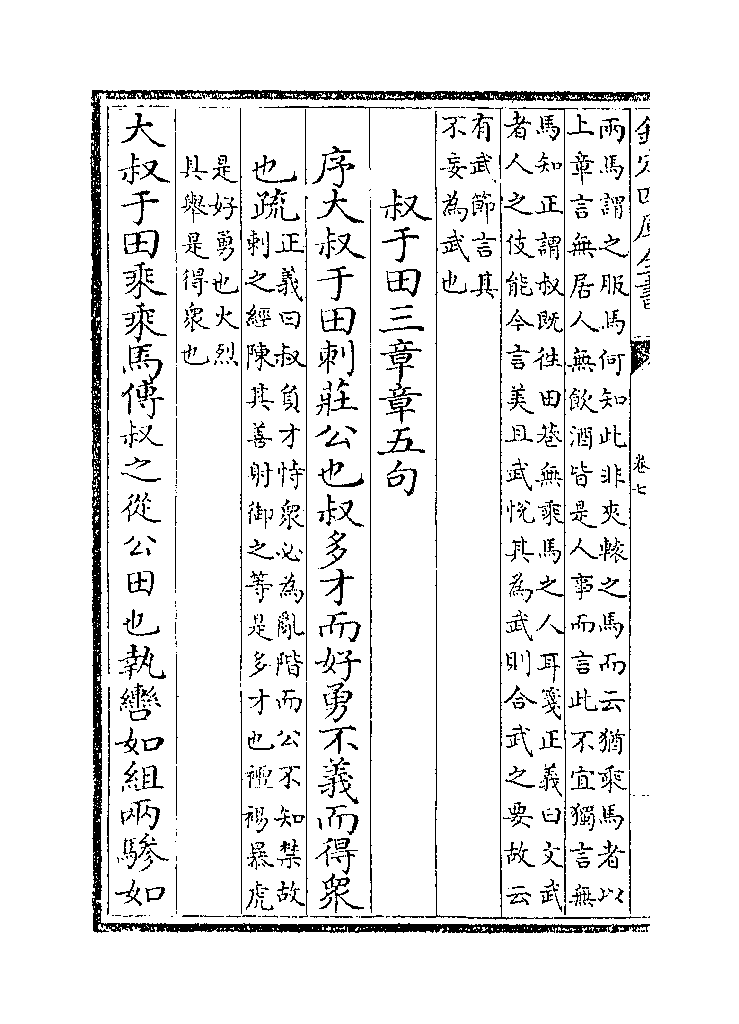 欽定四庫全書
卷七
兩馬謂之服馬何知此非夾轅之馬而云猶乘馬者以
上章言無居人無飲酒皆是人事而言此不宜獨言無
馬知正謂叔既往田巷無乘馬之人耳箋正義曰文武
者人之伎能今言美且武悅其為武則合武之要故云
有武節言其
不妄為武也
叔于田三章章五句
序大叔于田刺莊公也叔多才而好勇不義而得衆
也疏
正義曰叔負才恃衆必為亂階而公不知禁故
刺之經陳其善射御之等是多才也襢裼暴虎
是好勇也火烈
具舉是得衆也
大叔于田乘乘馬傳叔之從公田也執轡如組兩驂如